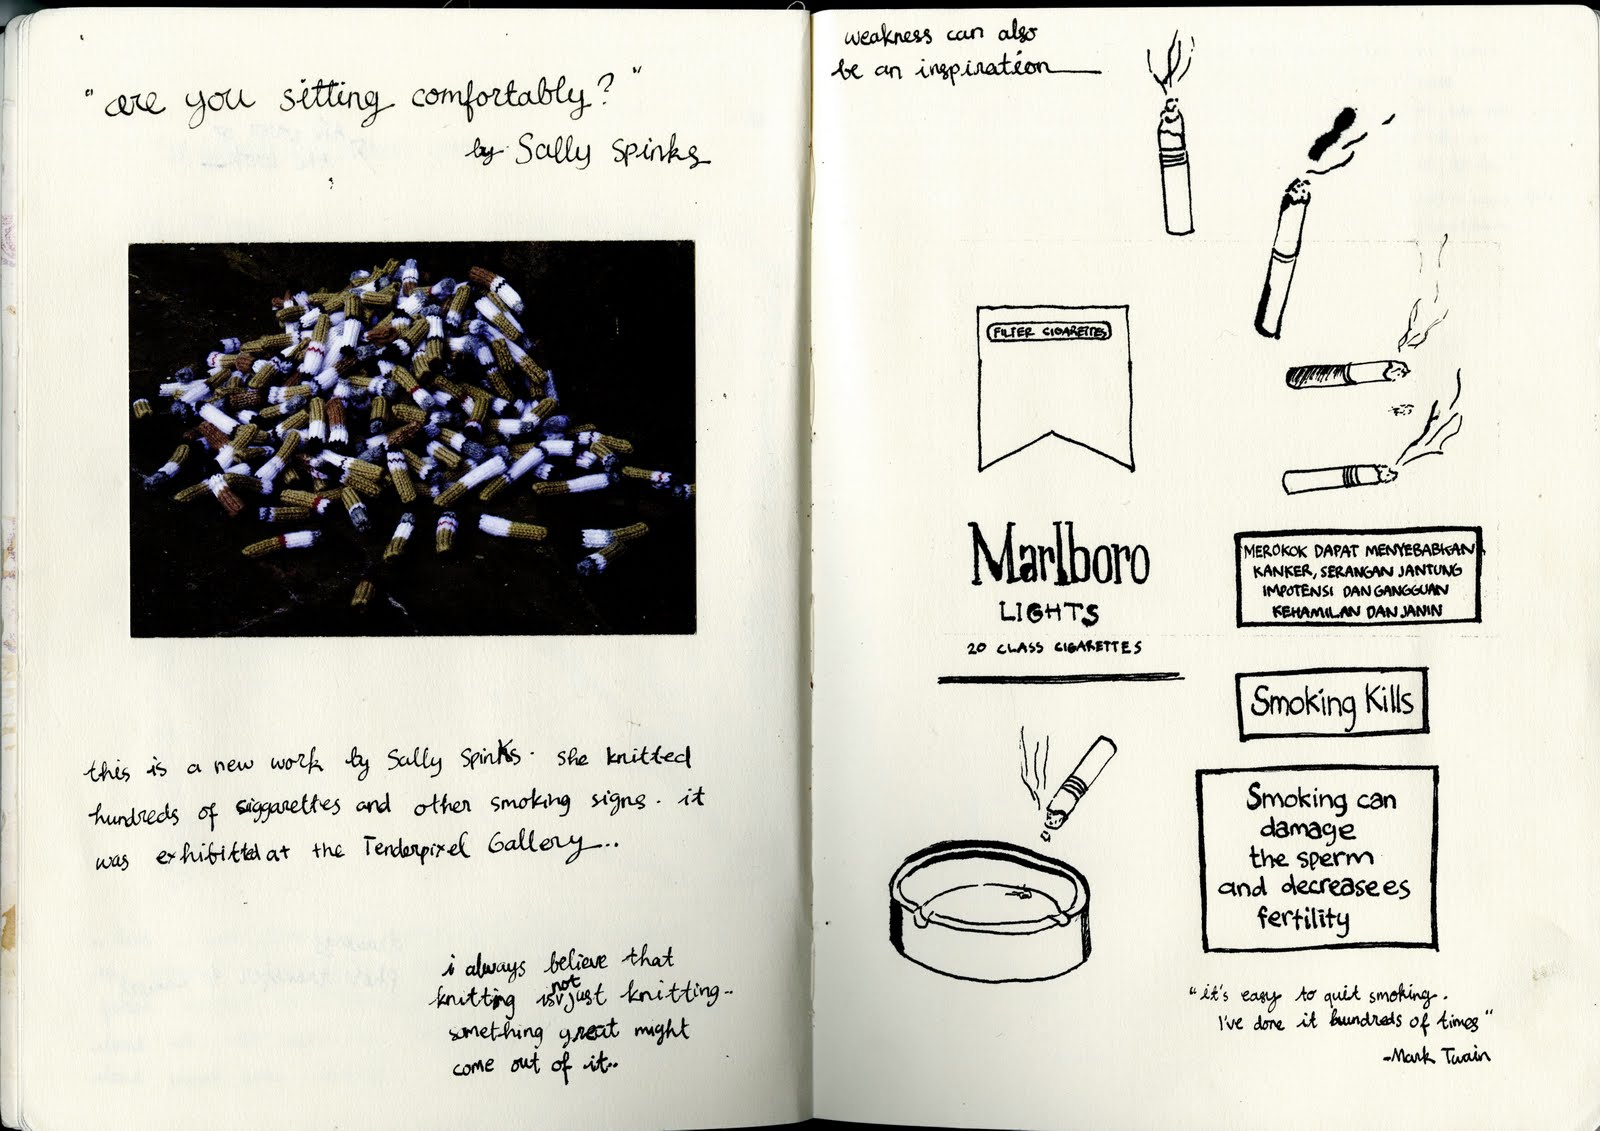 "are you sitting comfortably?"
by Sally Spinks
this is a new work by Sally Spinks. she knitted
hundreds of siggarettes and other smoking signs. it
was exhibitted at the Tenderpixel Gallery...
i always believe that
knitting is not just knitting..
something great might
come out of it..
weakness can also
be an inspiration
FILTER CIGARETTES
Marlboro
LIGHTS
20 CLASS CIGARETTES
MEROKOK DAPAT MENYEBABKAN
KANKER, SERANGAN JANTUNG
IMPOTENSI DAN GANGGUAN
KEHAMILAN DAN JANIN
Smoking Kills
Smoking can
damage
the sperm
and decreasees
fertility
"it's easy to quit smoking.
I've done it hundreds of times"
-Mark Twain